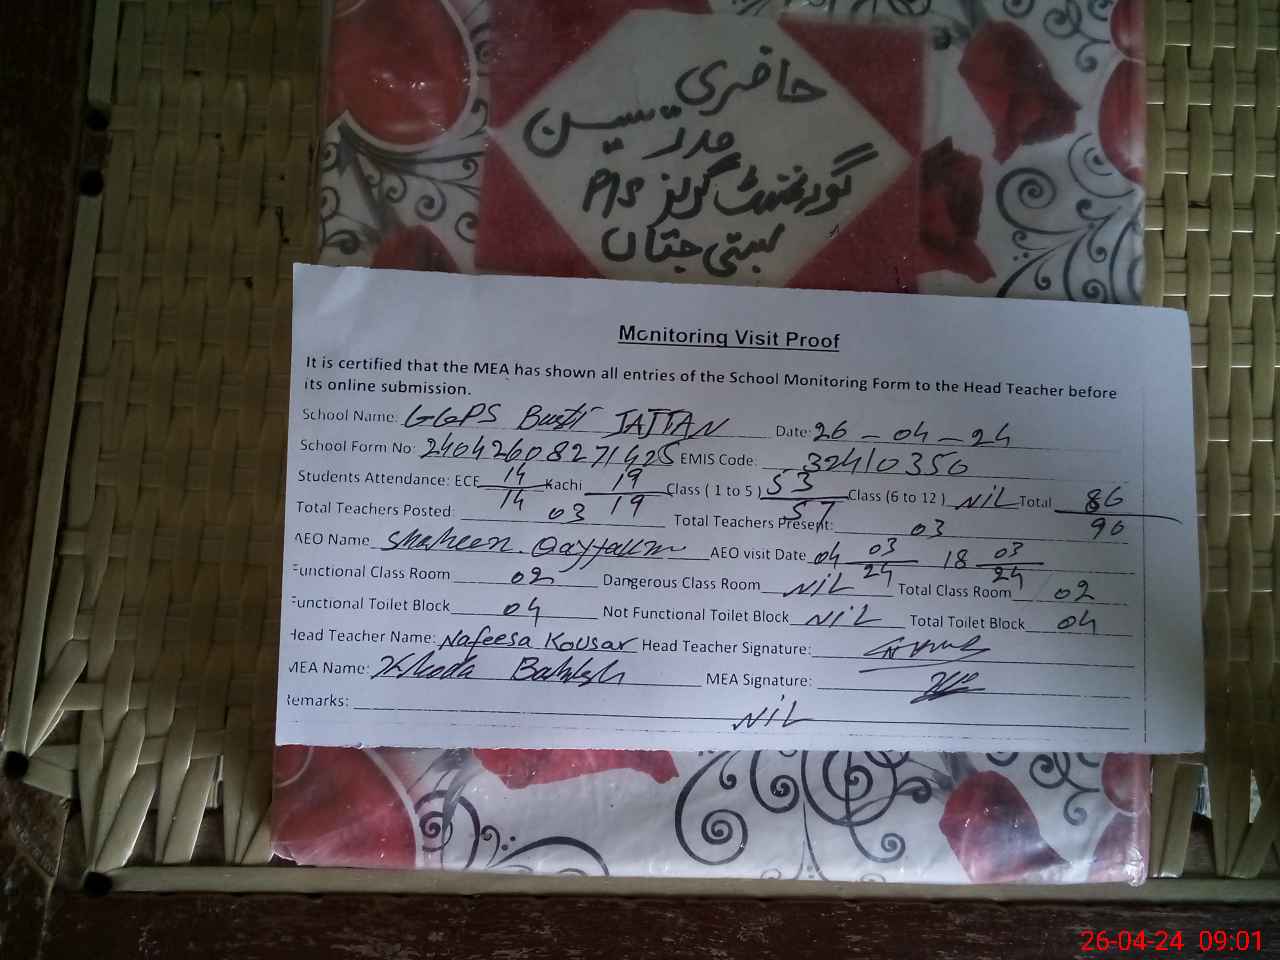 حاضری
مدرسین
گورنمنٹ گرلز P/S
بستی جتاں
Monitoring Visit Proof
It is certified that the MEA has shown all entries of the School Monitoring Form to the Head Teacher before
its online submission.
School Name: GGPS Busti JATTAN Date: 26-04-24
School Form No: 24042608271425 EMIS Code: 32410350
Students Attendance: ECE 14/14 Kachi 19/19 Class ( 1 to 5 ) 53/57 Class (6 to 12 ) NIL Total 86/90
Total Teachers Posted: 03 Total Teachers Present: 03
AEO Name Shaheen AEO visit Date 04 03/24 18 03/24
Functional Class Room 02 Dangerous Class Room NIL Total Class Room 02
Functional Toilet Block 04 Not Functional Toilet Block NIL Total Toilet Block 04
Head Teacher Name: Nafeesa Kousar Head Teacher Signature:
MEA Name: Khuda Bakhsh MEA Signature:
Remarks: NIL
26-04-24 09:01